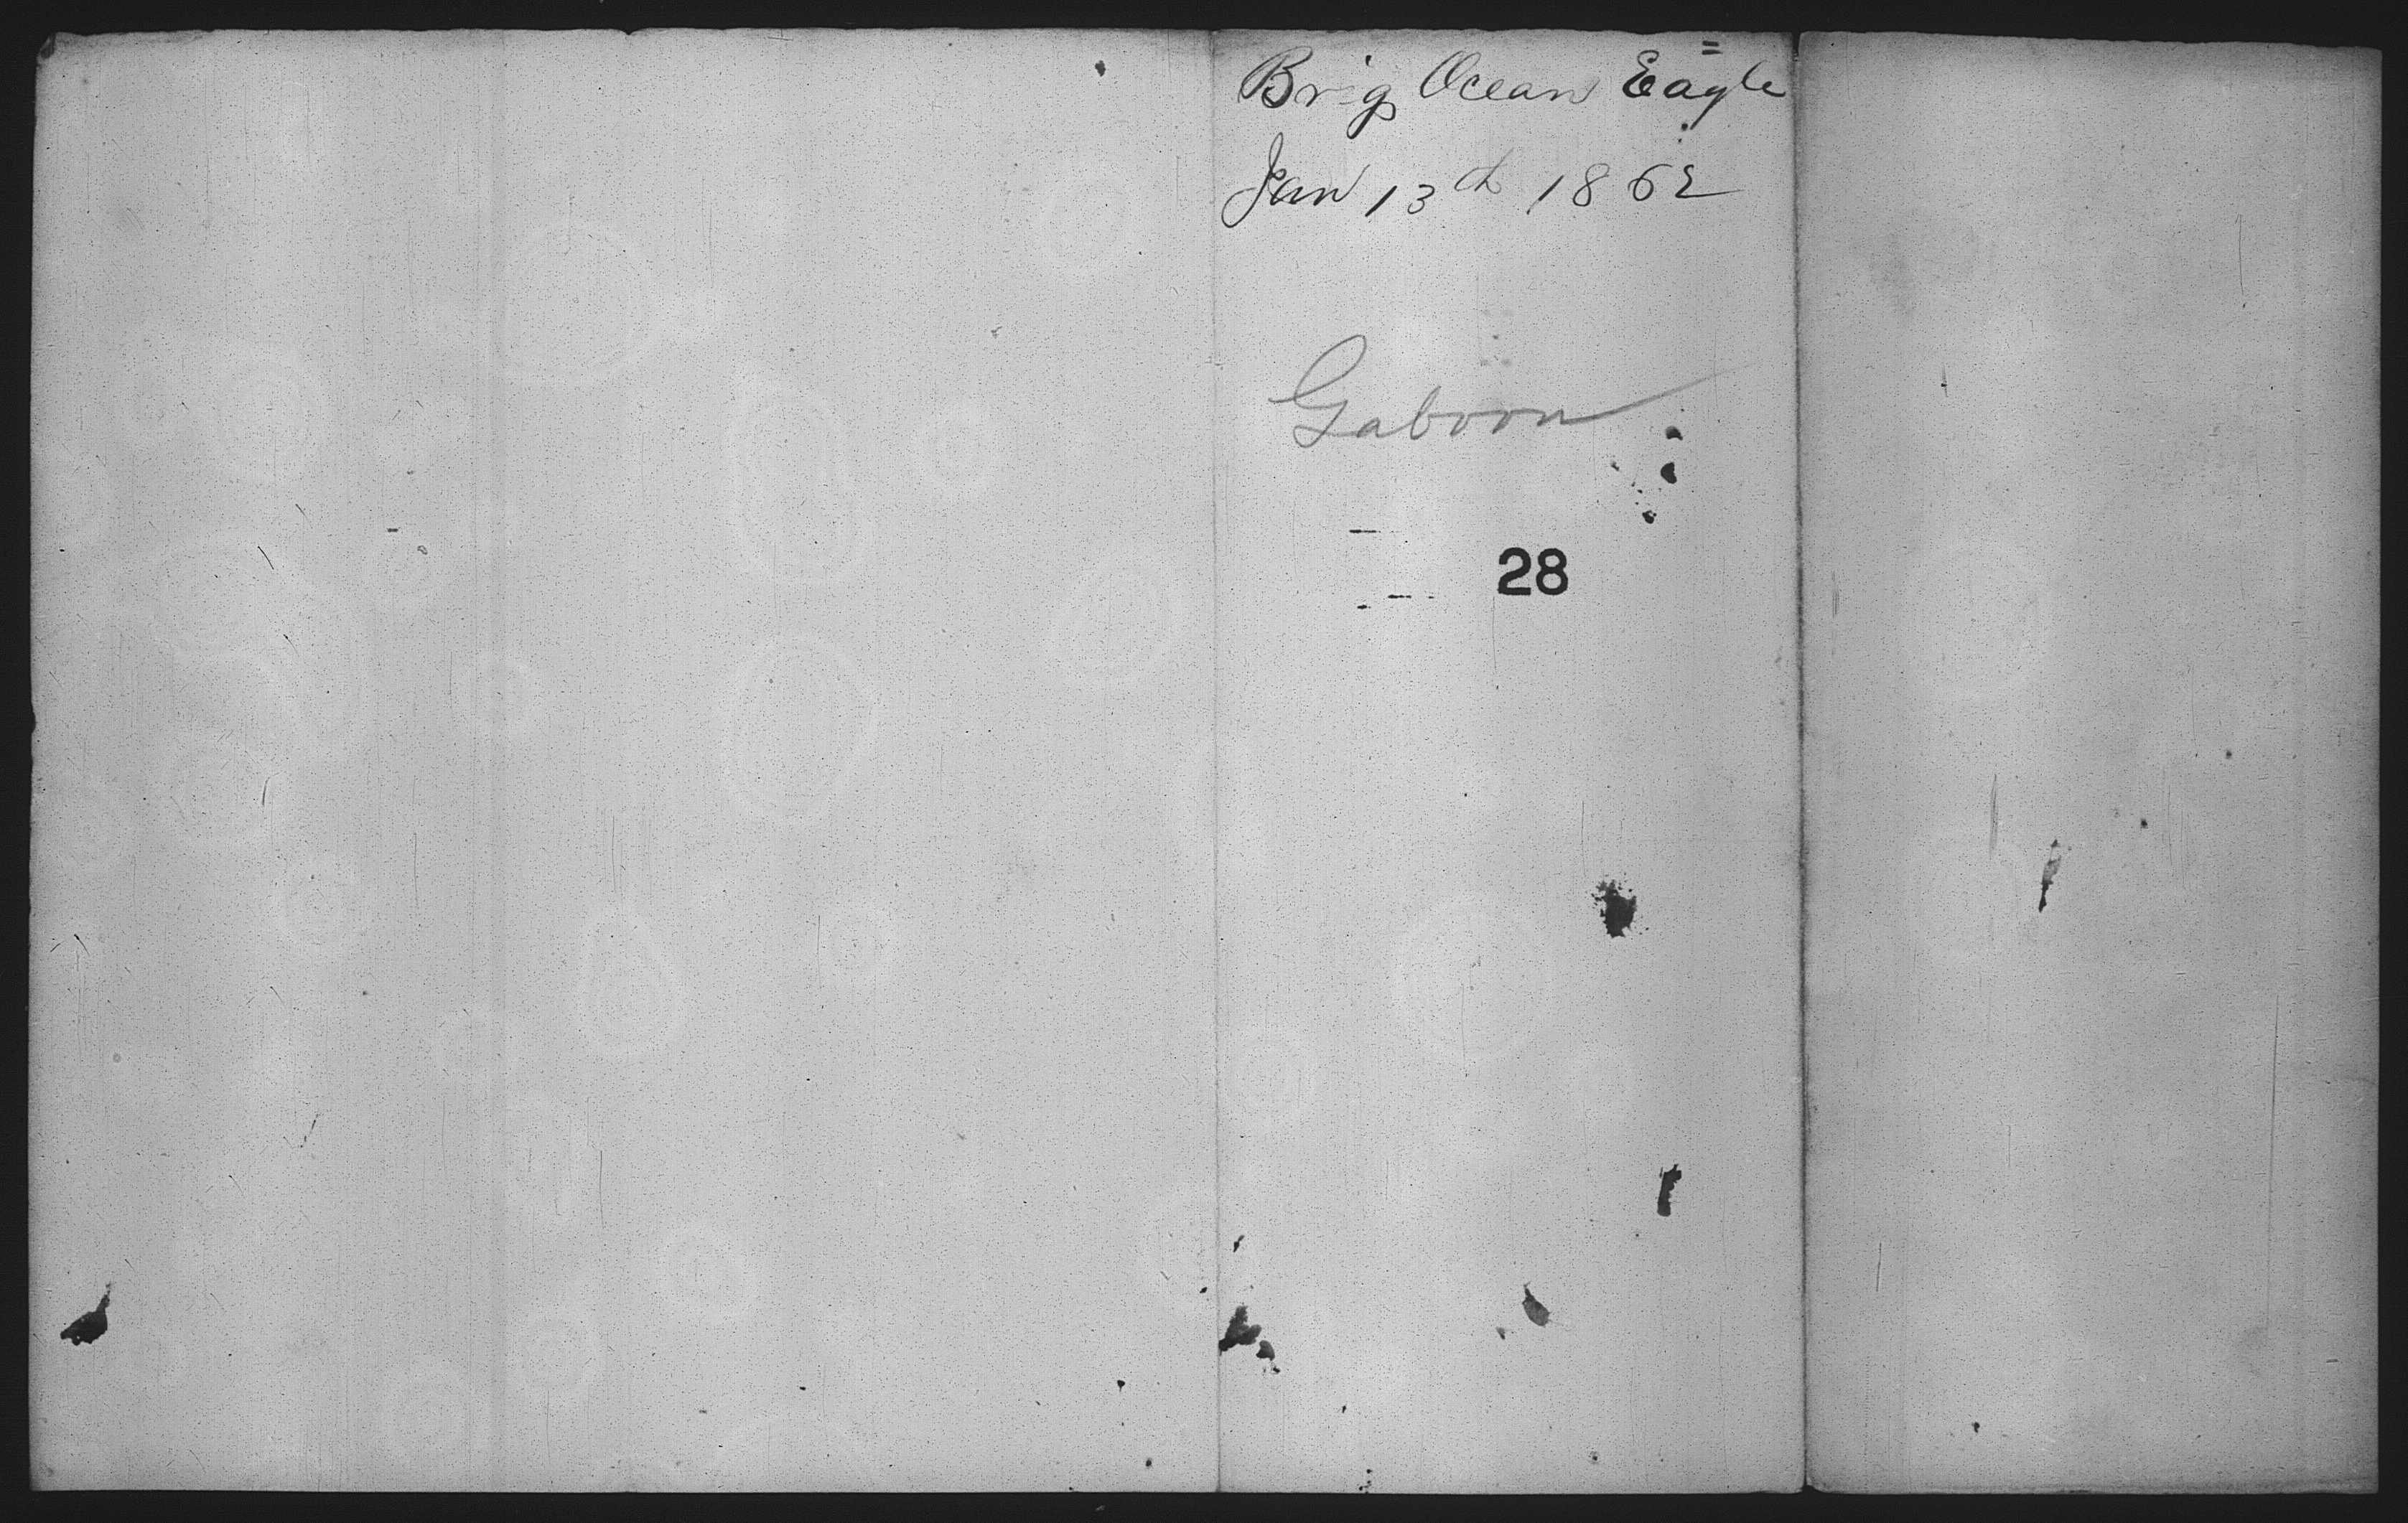 Brig Ocean Eagle
Jan 13th 1862
Gaboon
28